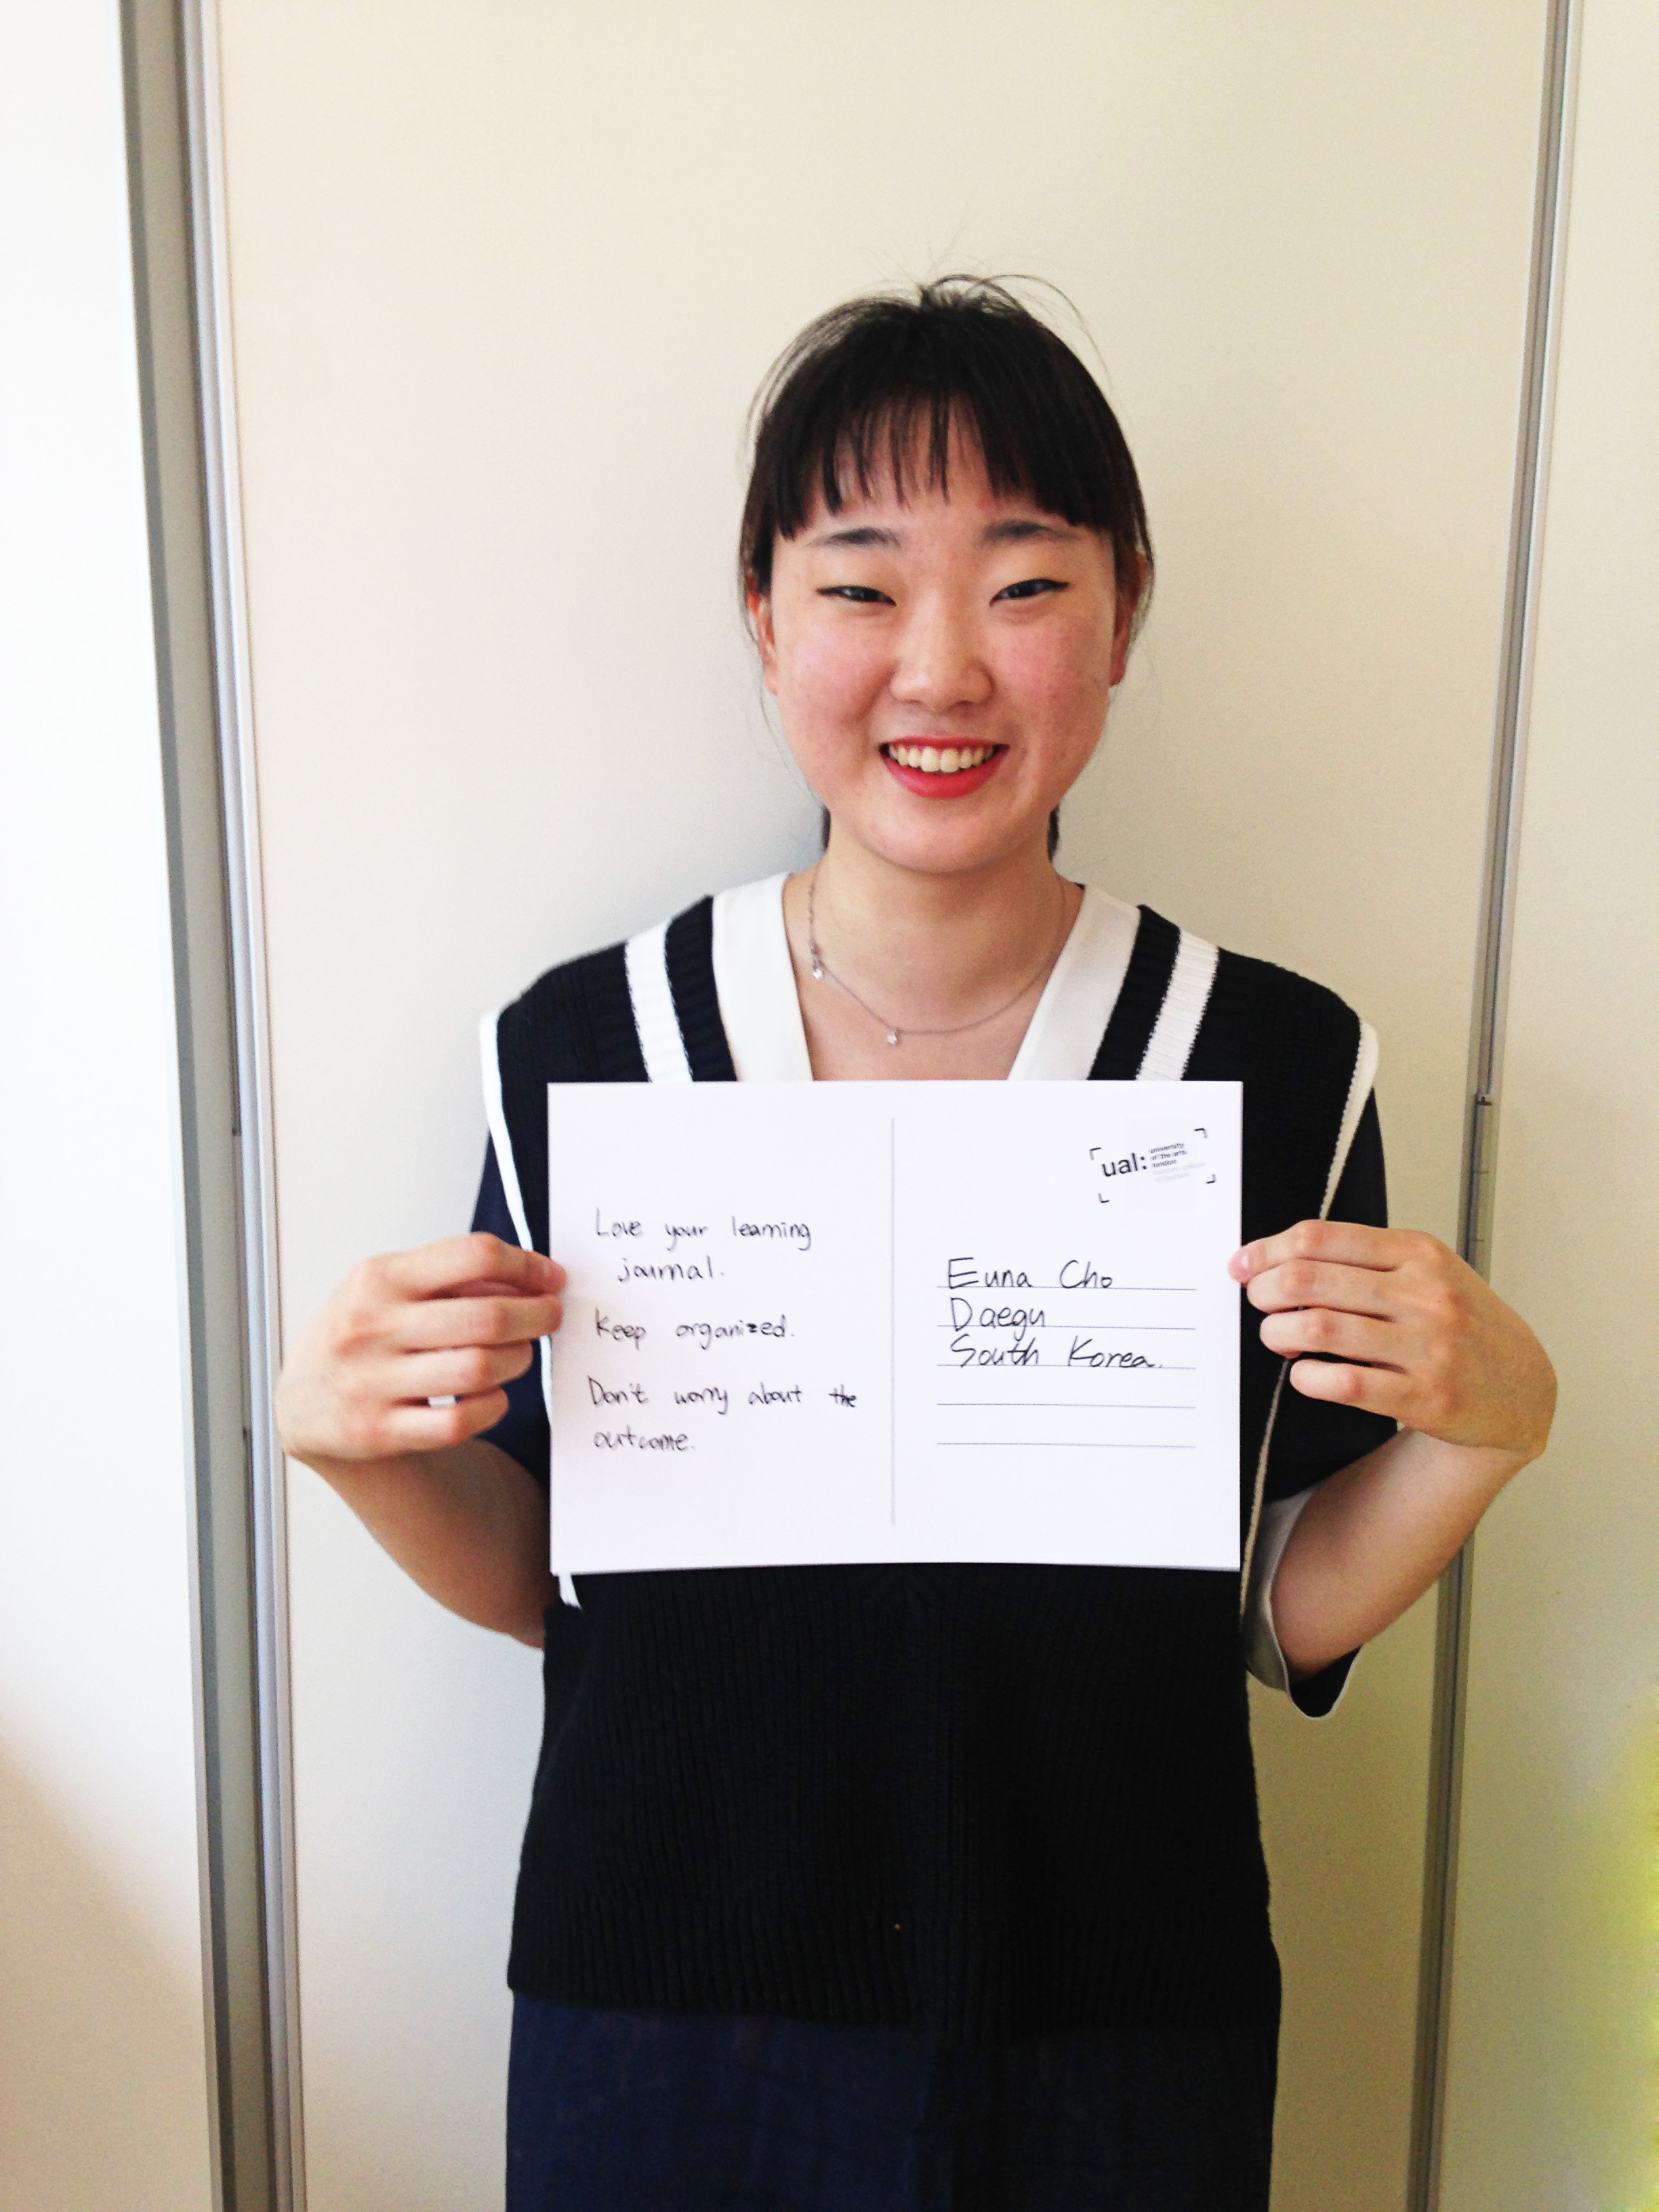 Love your learning
journal.
Keep organized.
Don't worry about the
outcome.
ual: university
of the arts
london
Euna Cho
Daegu
South Korea.